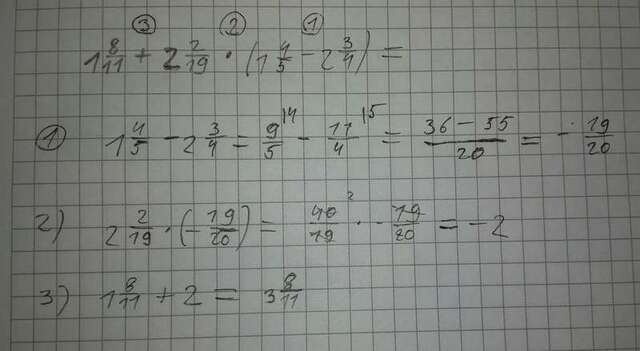 ③ ② ①
1 8/11 + 2 2/19 · (1 4/5 - 2 3/4) =
① 1 4/5 - 2 3/4 = 9/5 |4 - 11/4 |5 = 36 - 55/20 = - 19/20
2) 2 2/19 · (- 19/20) = 40/19 2 · - 19/20 = - 2
3) 1 8/11 + 2 = 3 8/11